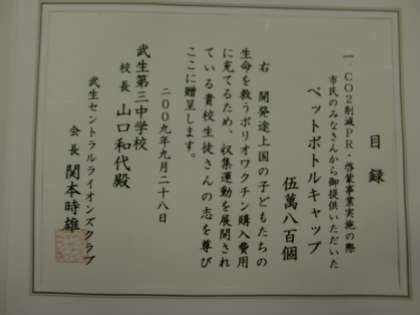 目録
一、CO2削減PR・啓蒙事業実施の際
市民のみなさんから御提供いただいた
ペットボトルキャップ
伍萬八百個
右 開発途上国の子どもたちの
生命を救うポリオワクチン購入費用
に充てるため、収集運動を展開され
ている貴校生徒さんの志を尊び
ここに贈呈します。
二〇〇九年九月二十八日
武生第三中学校
校長 山口和代殿
武生セントラルライオンズクラブ
会長 関本時雄